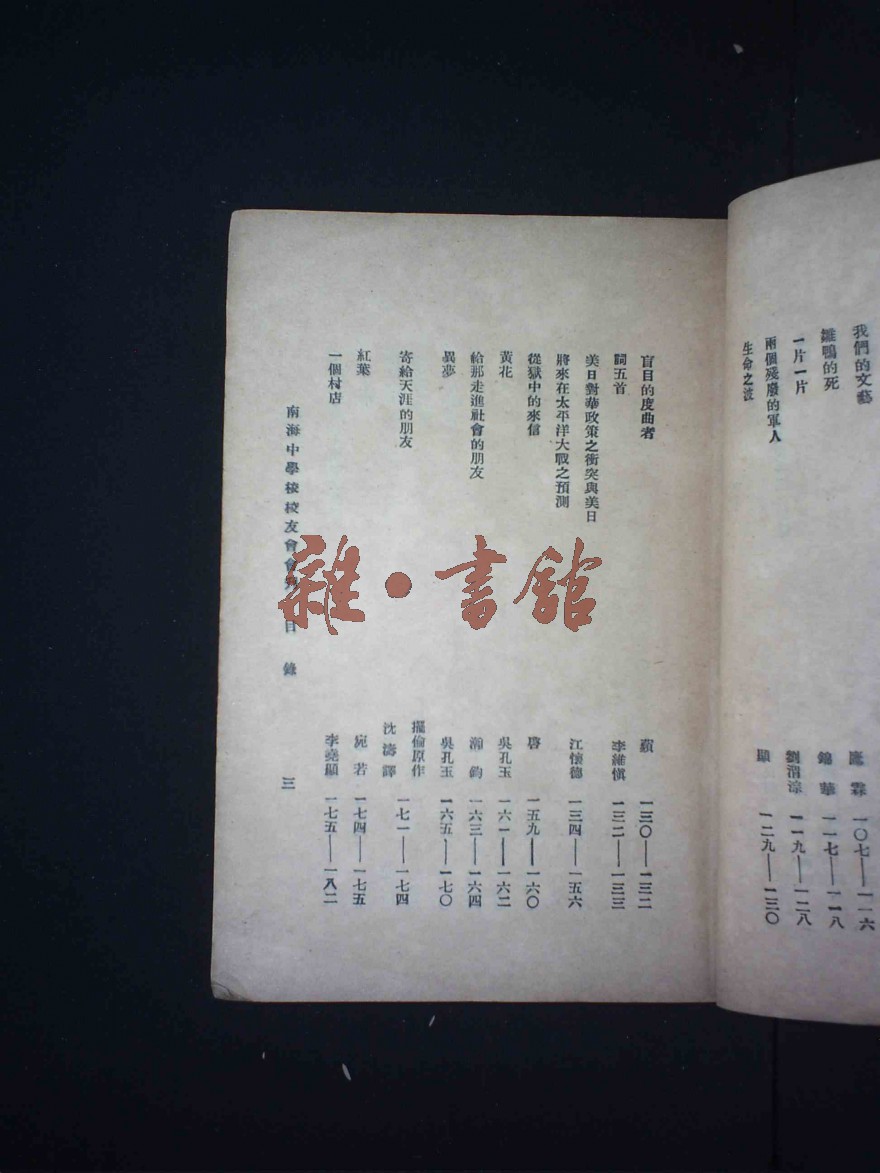 我們的文藝
雛鴨的死
一片一片
兩個殘廢的軍人
生命之波
霖 一〇七——一一六
錦華 一一七——一一八
劉渭淙 一一九——一二八
顯 一二九——一三〇
盲目的度曲者 蘋 一三〇——一三二
詞五首 李維愼 一三二——一三三
美日對華政策之衝突與美日
將來在太平洋大戰之預測 江懷德 一三四——一五六
從獄中的來信 啓 一五九——一六〇
黃花 吳孔玉 一六一——一六二
給那走進社會的朋友 瀚鈞 一六三——一六四
異夢 吳孔玉 一六五——一七〇
擺倫原作
寄給天涯的朋友 沈濤譯 一七一——一七四
紅葉 宛若 一七四——一七五
一個村店 李堯顯 一七五——一八二
南海中學校校友會會 目錄 三
雜·書館